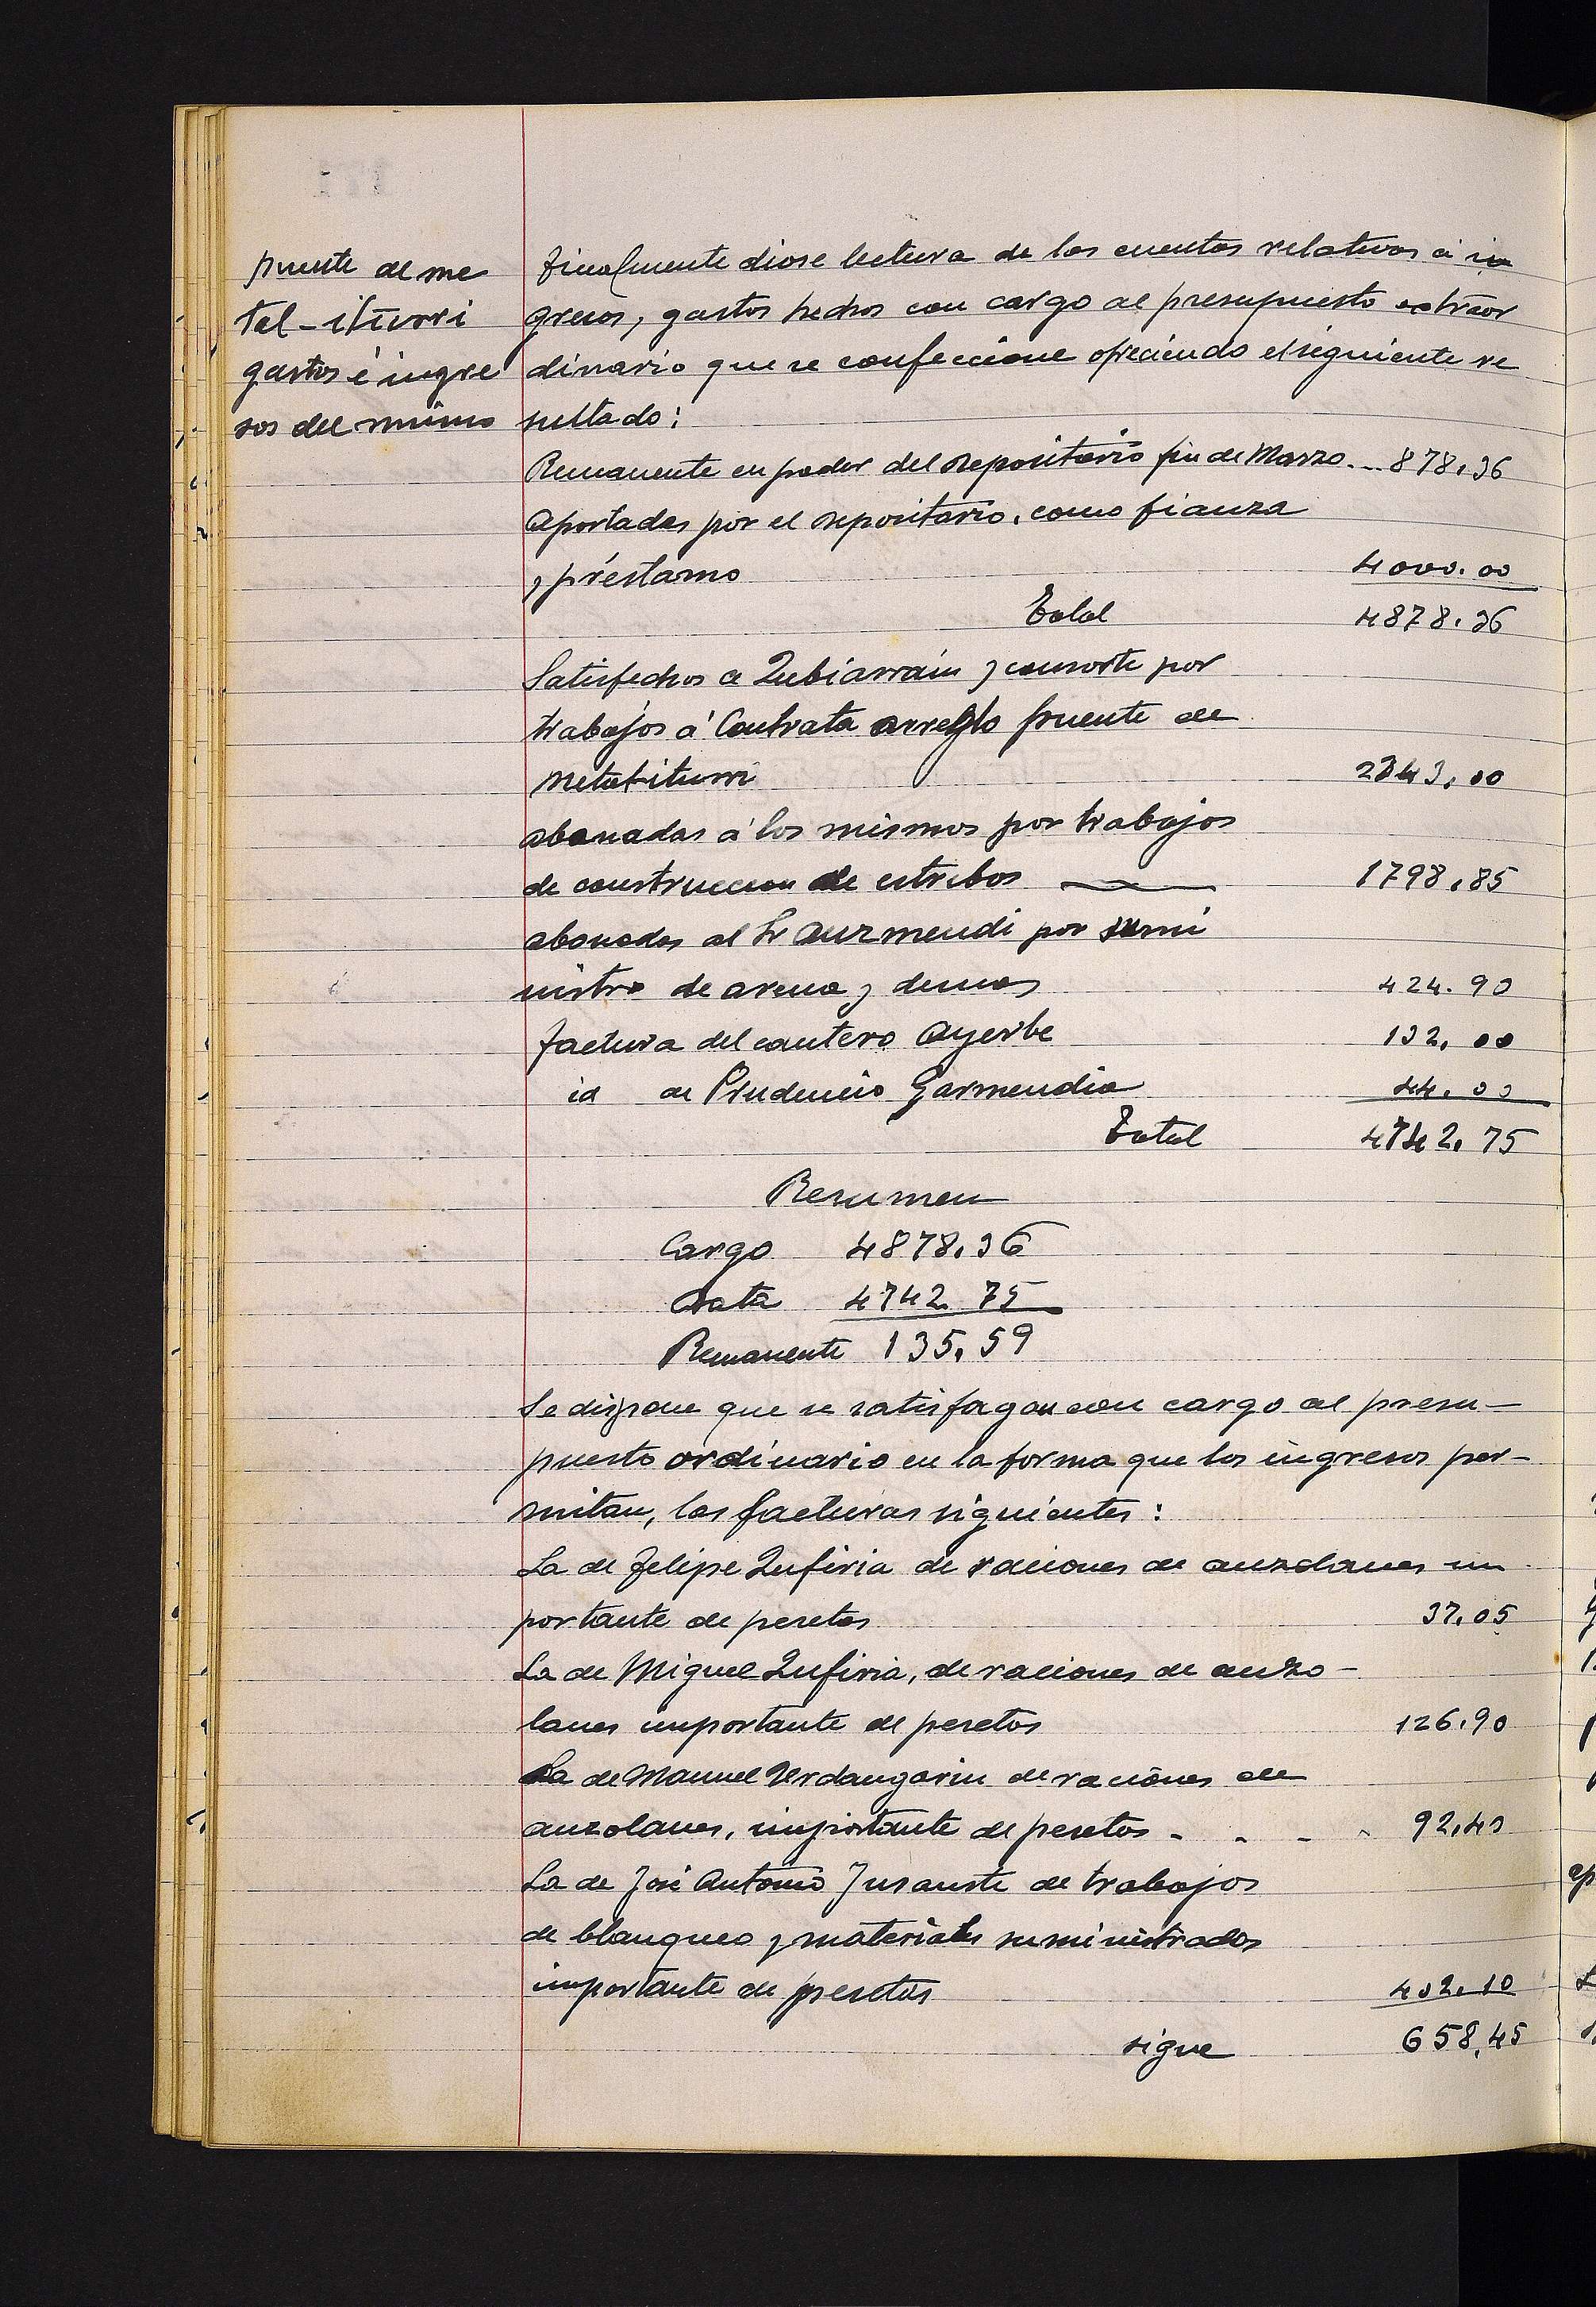 puente de me
tal-iturri
gastos é ingre
sos del mismo
Finalmente diose lectura de las cuentas relativas á in
gresos, gastos hechos con cargo al presupuesto extraor
dinario que se confeccione ofreciendo el siguiente re
sultado:
Remanente en poder del depositario fin de Marzo... 878,36
Aportadas por el depositario, como fianza
y préstamo 4000.00
Total 4878.36
Satisfechos a Zubiarrain y consorte por
trabajos á Contrata arreglo puente de
Metaliturri 2343,00
abonadas á los mismos por trabajos
de construccion de estribos 1798,85
abonadas al Sr Auzmendi por sumi
nistro de arena y demas 424.90
factura del cantero Ayerbe 132,00
id de Prudencio Garmendia 44.00
Total 4742,75
Resumen
Cargo 4878,36
Data 4742 75
Remanente 135,59
Se dispone que se satisfagan con cargo al presu-
puesto ordinario en la forma que los ingresos per-
mitan, las facturas siguientes:
La de Felipe Zufiria de raciones de auzolanes im
portante de pesetas 37,05
La de Miguel Zufiria, de raciones de auzo-
lanes importante de pesetas 126,90
La de Manuel Urdangarin de raciones de
auzolanes, importante de pesetas - - - - 92,40
La de José Antonio Insausti de trabajos
de blanqueo y materiales suministrados
importante de pesetas 402,10
sigue 658,45